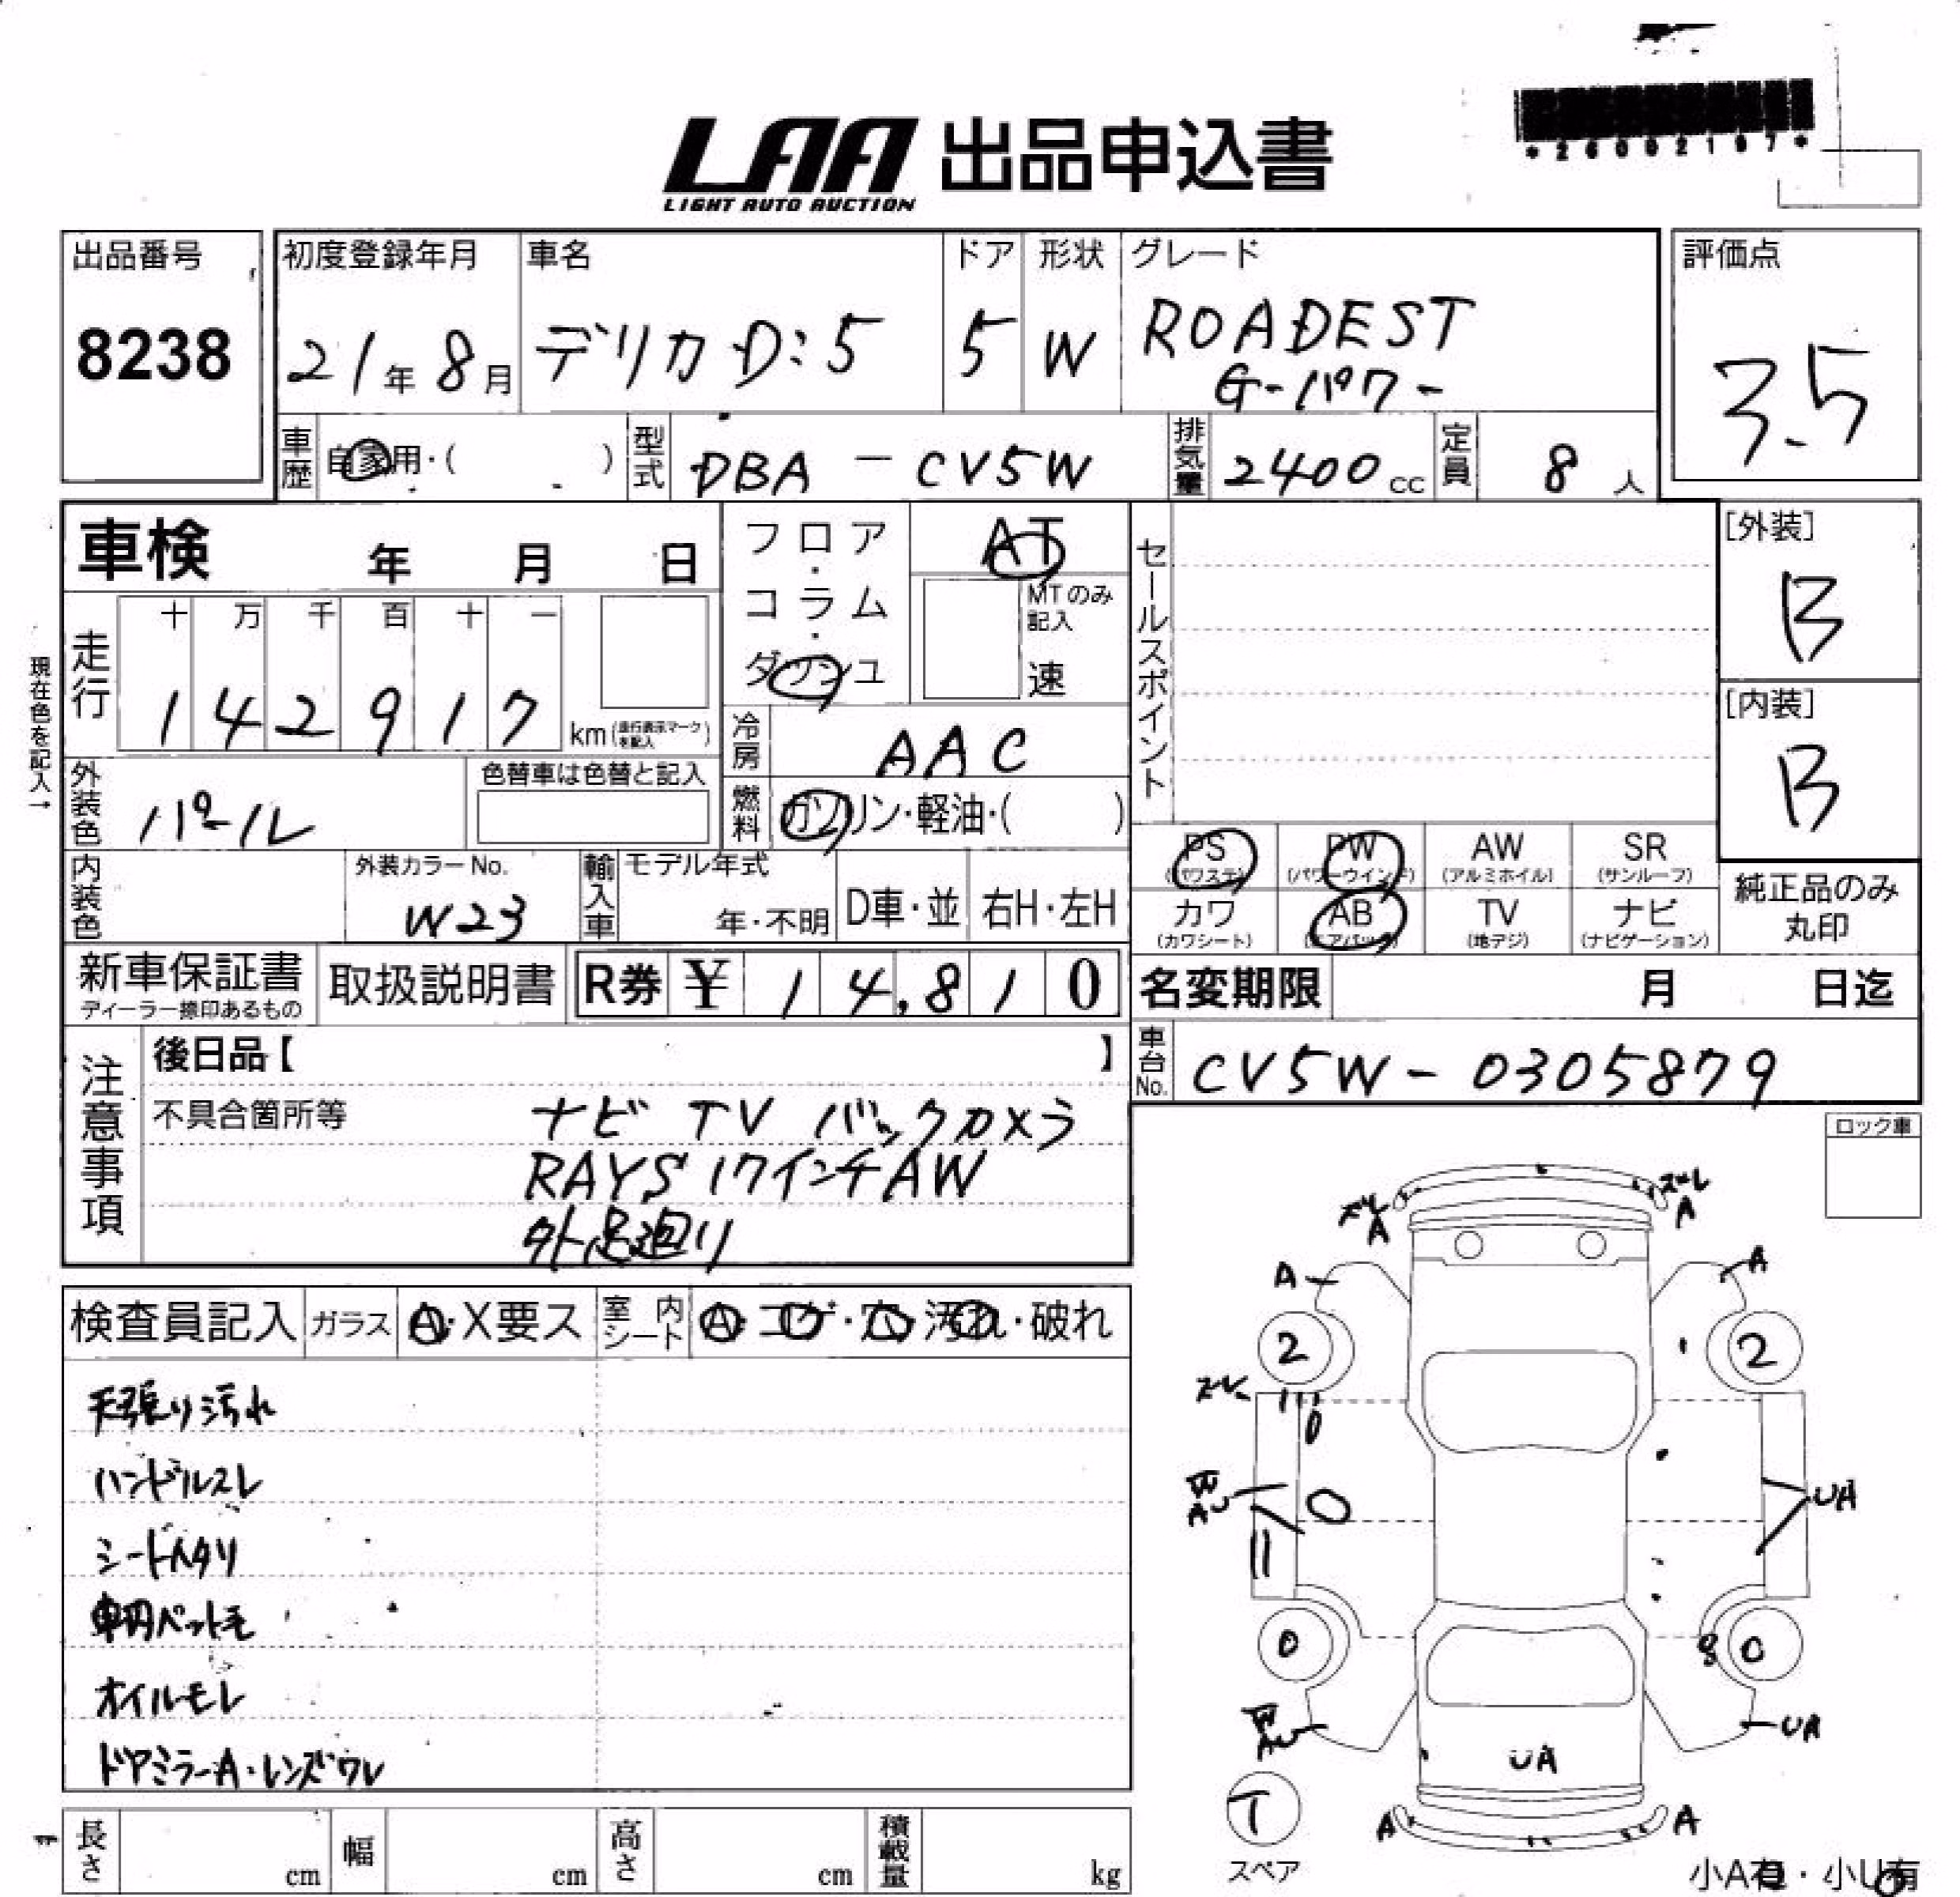 *26002107*
LAA 出品申込書
LIGHT AUTO AUCTION
出品番号
8238
初度登録年月
21年8月
車名
デリカD:5
ドア
5
形状
W
グレード
ROADEST
G-パワー
評価点
3.5
車歴 自家用・( )
型式 DBA-CV5W
排気量 2400cc
定員 8人
車検 年 月 日
フロア・コラム・ダッシュ
AT
MTのみ記入
速
セールスポイント
[外装]
B
[内装]
B
現在色を記入→
走行
十 万 千 百 十 一
1 4 2 9 1 7
km(走行表示マークを記入)
冷房 AAC
外装色 パール
色替車は色替と記入
燃料 ガソリン・軽油・( )
内装色
外装カラーNo.
W23
輸入車
モデル年式
年・不明
D車・並
右H・左H
PS (パワステ)
PW (パワーウインド)
AW (アルミホイル)
SR (サンルーフ)
カワ (カワシート)
AB (エアバック)
TV (地デジ)
ナビ (ナビゲーション)
純正品のみ
丸印
新車保証書
ディーラー捺印あるもの
取扱説明書
R券 ¥ 14,810
名変期限 月 日迄
車台No. CV5W-0305879
注意事項
後日品【 】
不具合箇所等
ナビ TV バックカメラ
RAYS 17インチAW
外足廻り
ロック車
検査員記入
ガラス A・X要ス
室内シート A・コゲ・穴・汚れ・破れ
天張り汚れ
ハンドルスレ
シートヘタリ
車内ペット毛
オイルモレ
ドアミラーA・レンズワレ
スレ
A
スレ
A
A
A
2
2
スレ
UA
0
8
0
UA
UA
T
スペア
A
A
小A有・小U有
長さ cm
幅 cm
高さ cm
積載量 kg